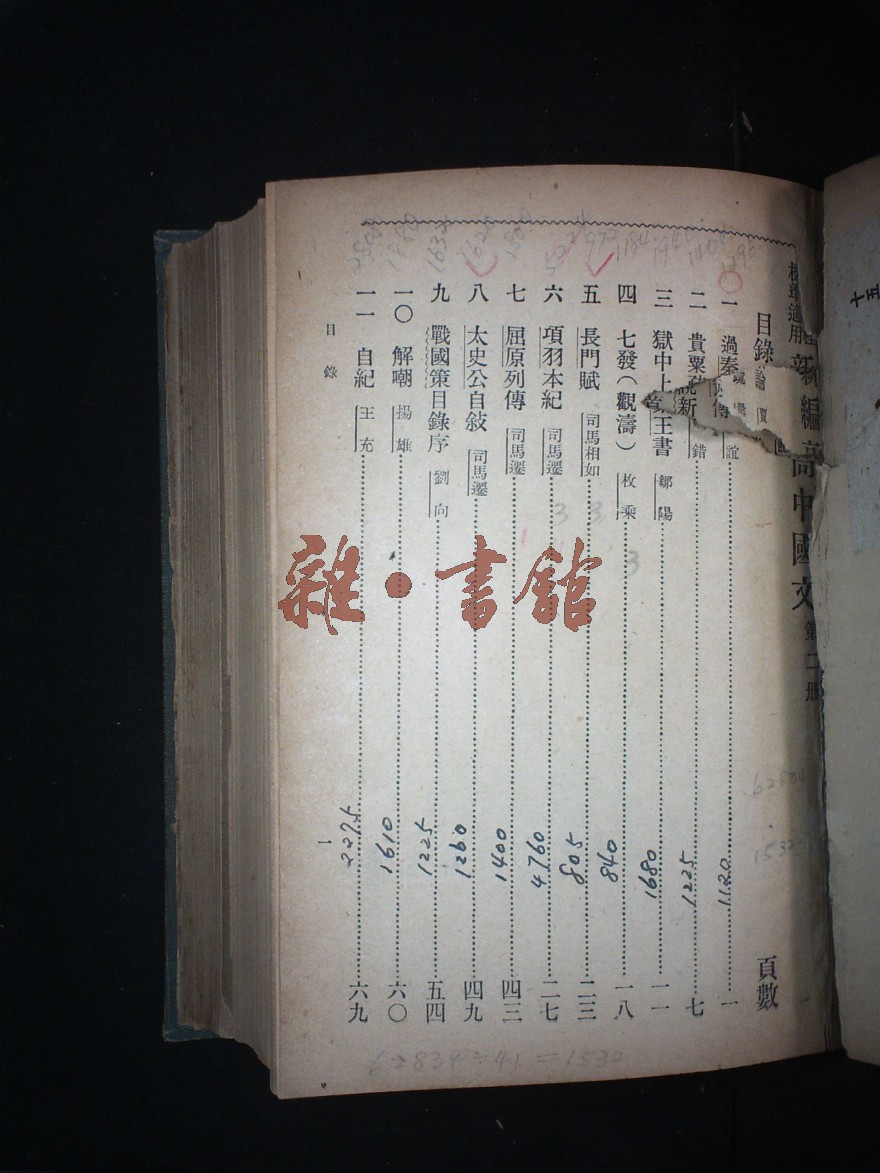 新編高中國文 第二册
目錄 頁數
一 過秦 一
二 貴粟 錯 七
三 獄中上 王書 鄒陽 一一
四 七發（觀濤） 枚乘 一八
五 長門賦 司馬相如 二三
六 項羽本紀 司馬遷 二七
七 屈原列傳 司馬遷 四三
八 太史公自敍 司馬遷 四九
九 戰國策目錄序 劉向 五四
一〇 解嘲 揚雄 六〇
一一 自紀 王充 六九
目錄
一
1120
1225
1680
840
805
4760
1400
1260
1225
1610
2275
62839÷41=1532
十五
雜·書舘